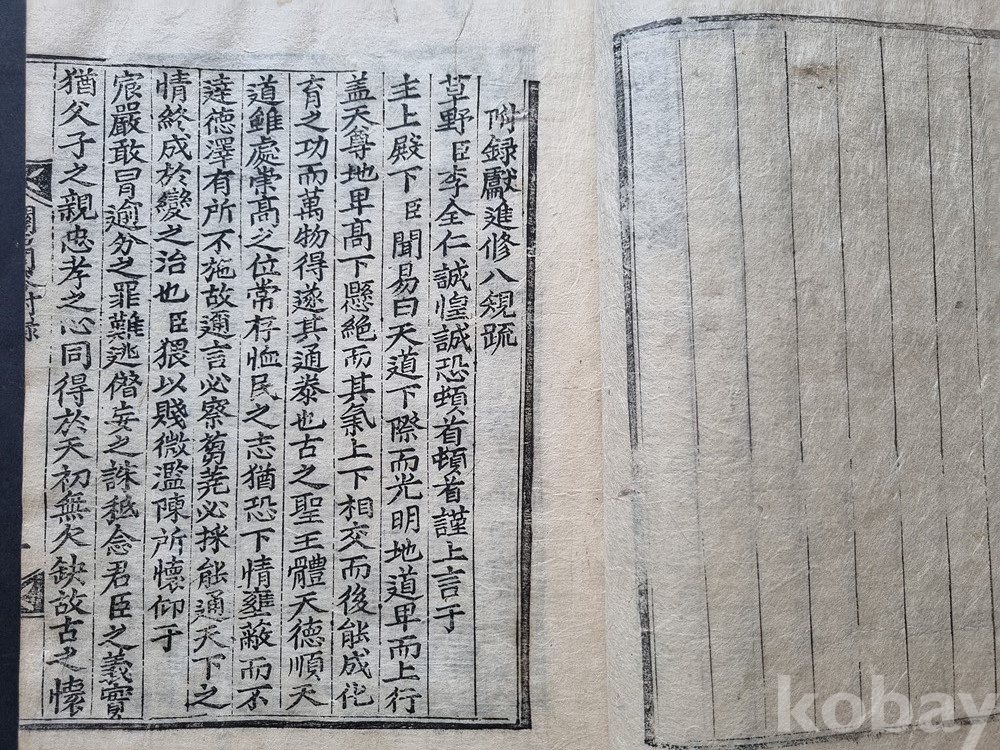 附録獻進修八規䟽
草野臣李全仁誠惶誠恐頓首頓首謹上言于
主上殿下臣聞易曰天道下際而光明地道卑而上行
盖天尊地卑高下懸絶而其氣上下相交而後能成化
育之功而萬物得遂其通泰也古之聖王體天德順天
道雖處崇高之位常存恤民之志猶恐下情壅蔽而不
達德澤有所不施故邇言必察蒭蕘必採能通天下之
情終成於變之治也臣猥以賤微濫陳所懷仰于
宸嚴敢冒逾分之罪難逃僭妄之誅秪念君臣之義實
猶父子之親忠孝之心同得於天初無欠缺故古之懷
附録
kobay